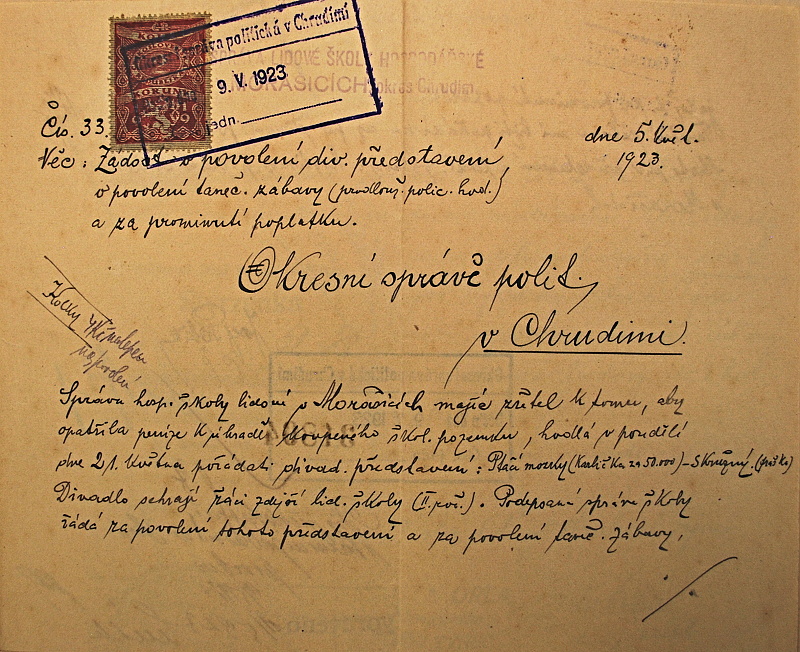 správa politická v Chrudimi
LIDOVÉ ŠKOLY HOSPODÁŘSKÉ
MORAŠICÍCH, okres Chrudim.
9. V. 1923
jedn.
Čís. 33.
dne 5. Květ.
1923.
Věc: Žádost o povolení div. představení,
o povolení taneč. zábavy (prodlouž. polic. hod.)
a za prominutí poplatku.
Okresní správě polit.
v Chrudimi.
Kolky
Správa hosp. školy lidové v Morašicích majíc zřetel k tomu, aby
opatřila peníze k úhradě koupeného škol. pozemku, hodlá v pondělí
dne 21. Května pořádati divad. představení: Ptačí mozky (Karlička za 50.000) – Skružný. (fraška)
Divadlo sehrají žáci zdejší lid. školy (II. roč.). Podepsaná správa školy
žádá za povolení tohoto představení a za povolení taneč. zábavy,